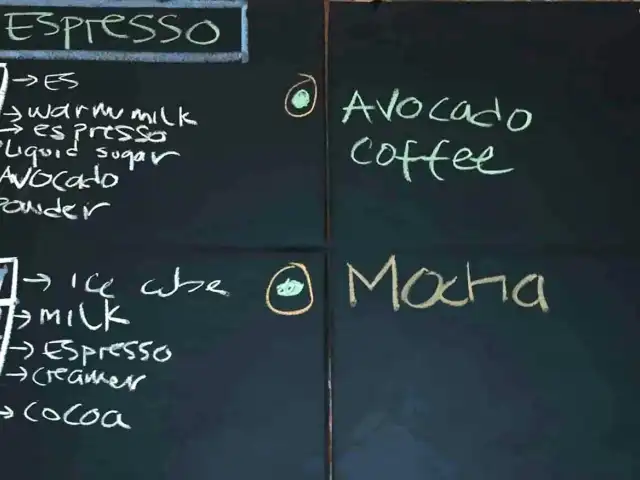 Espresso
→ ES
→ warm milk
→ espresso
Liquid sugar
Avocado
powder
Avocado
coffee
→ Ice cube
→ milk
→ Espresso
→ creamer
→ cocoa
Mocha